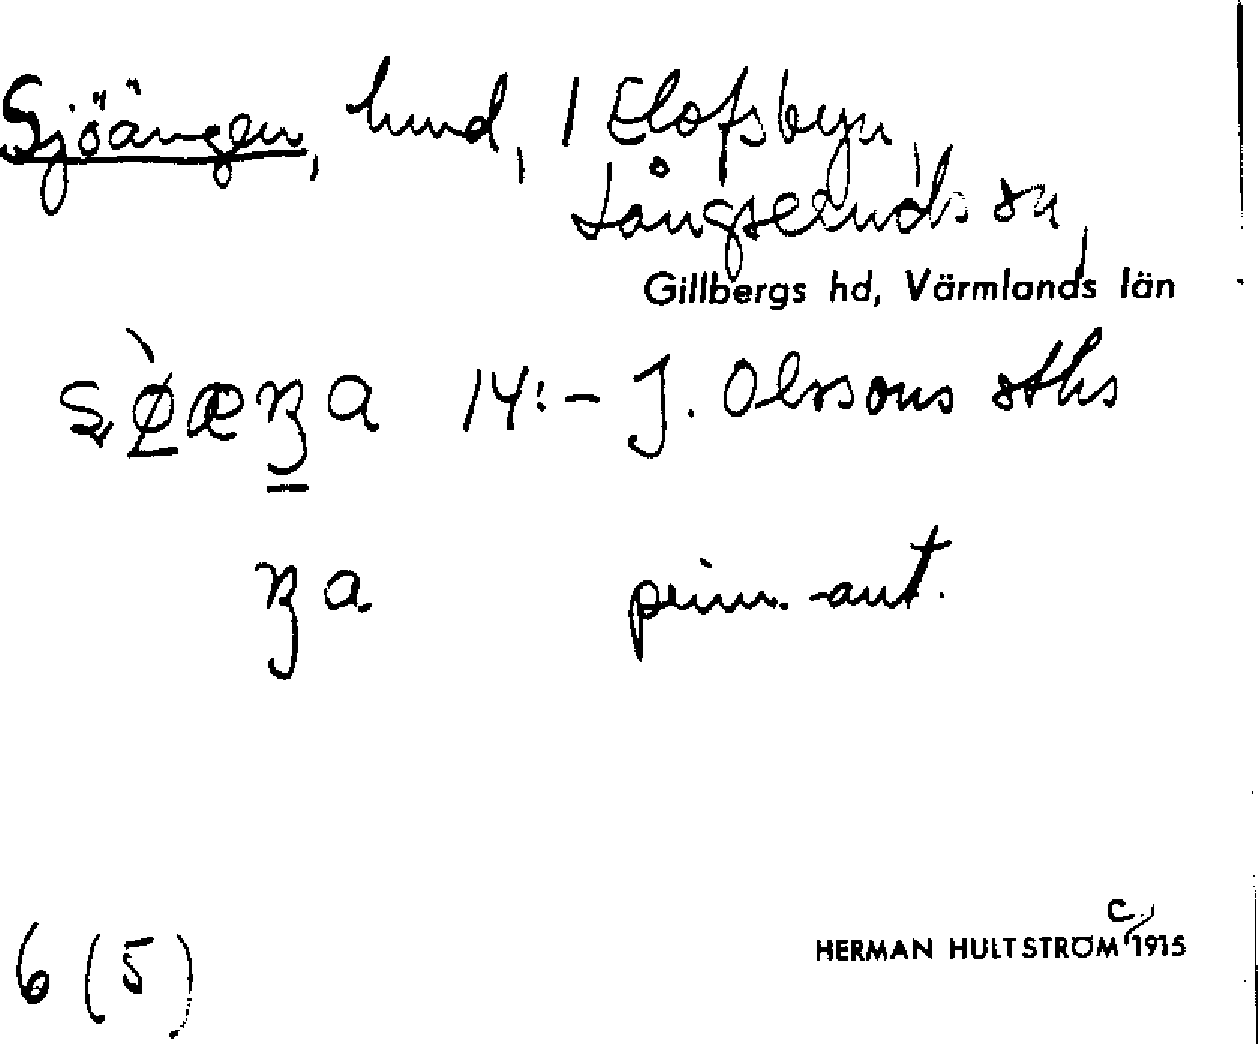 Sjöängen, hmd, 1 Elofsbyn,
Långseruds sn,
Gillbergs hd, Värmlands län
14:- J. Olssons sths
prim. -ant.
6 (5)
HERMAN HULTSTRÖM c. 1915